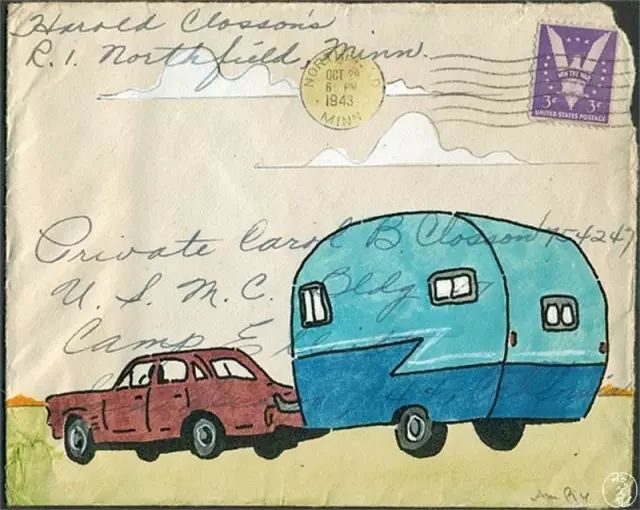 Harold Closson's
R. 1. Northfield, Minn.
NORTHFIELD
OCT 29
6 PM
1943
MINN.
WIN THE WAR
3¢ 3¢
UNITED STATES POSTAGE
Private Carol B. Closson
U. S. M. C. Bldg
Camp